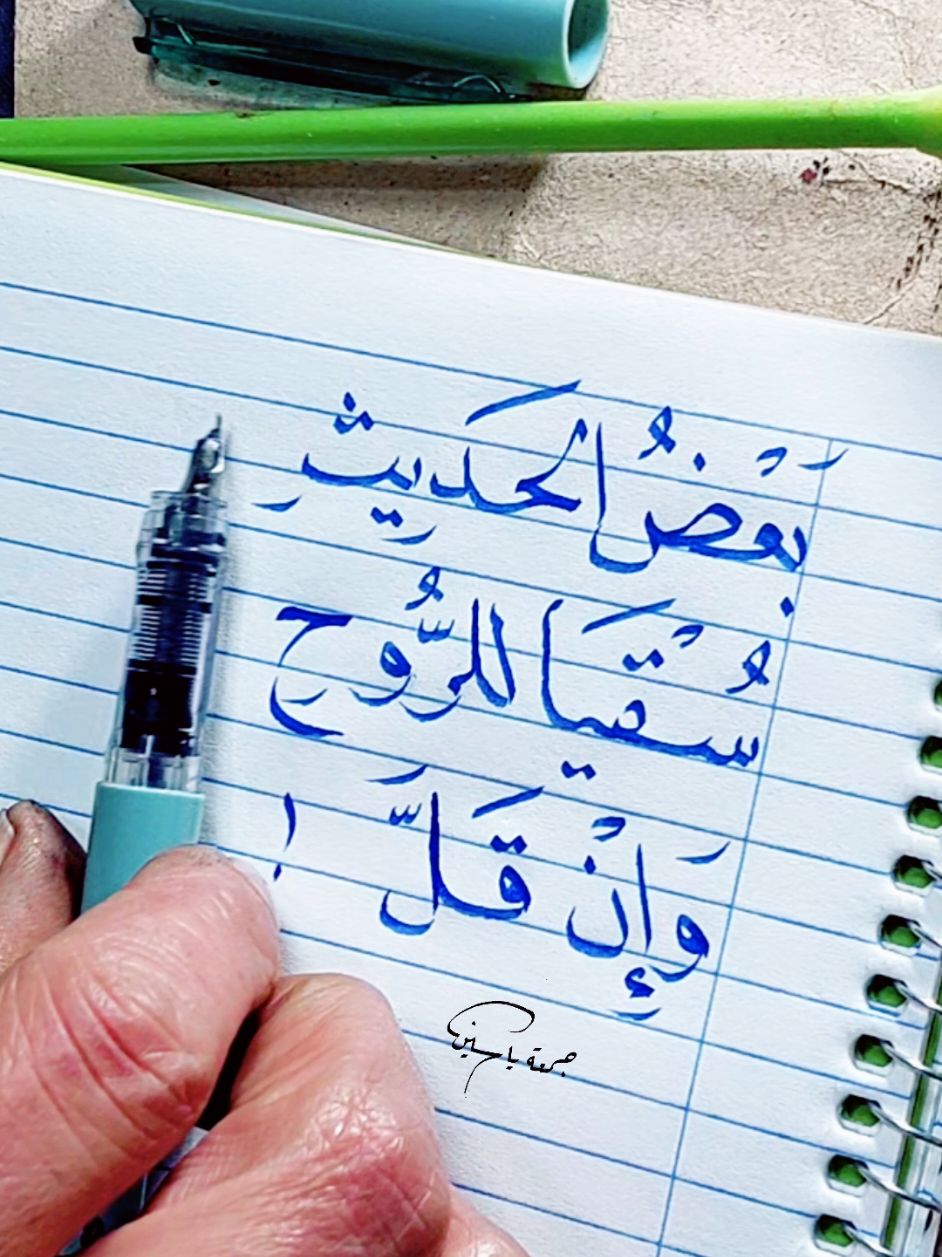 بَعْضُ الْحَدِيثِ
سُقْيَا لِلرُّوحِ
وَإِنْ قَلَّ !
جمعة ياسين